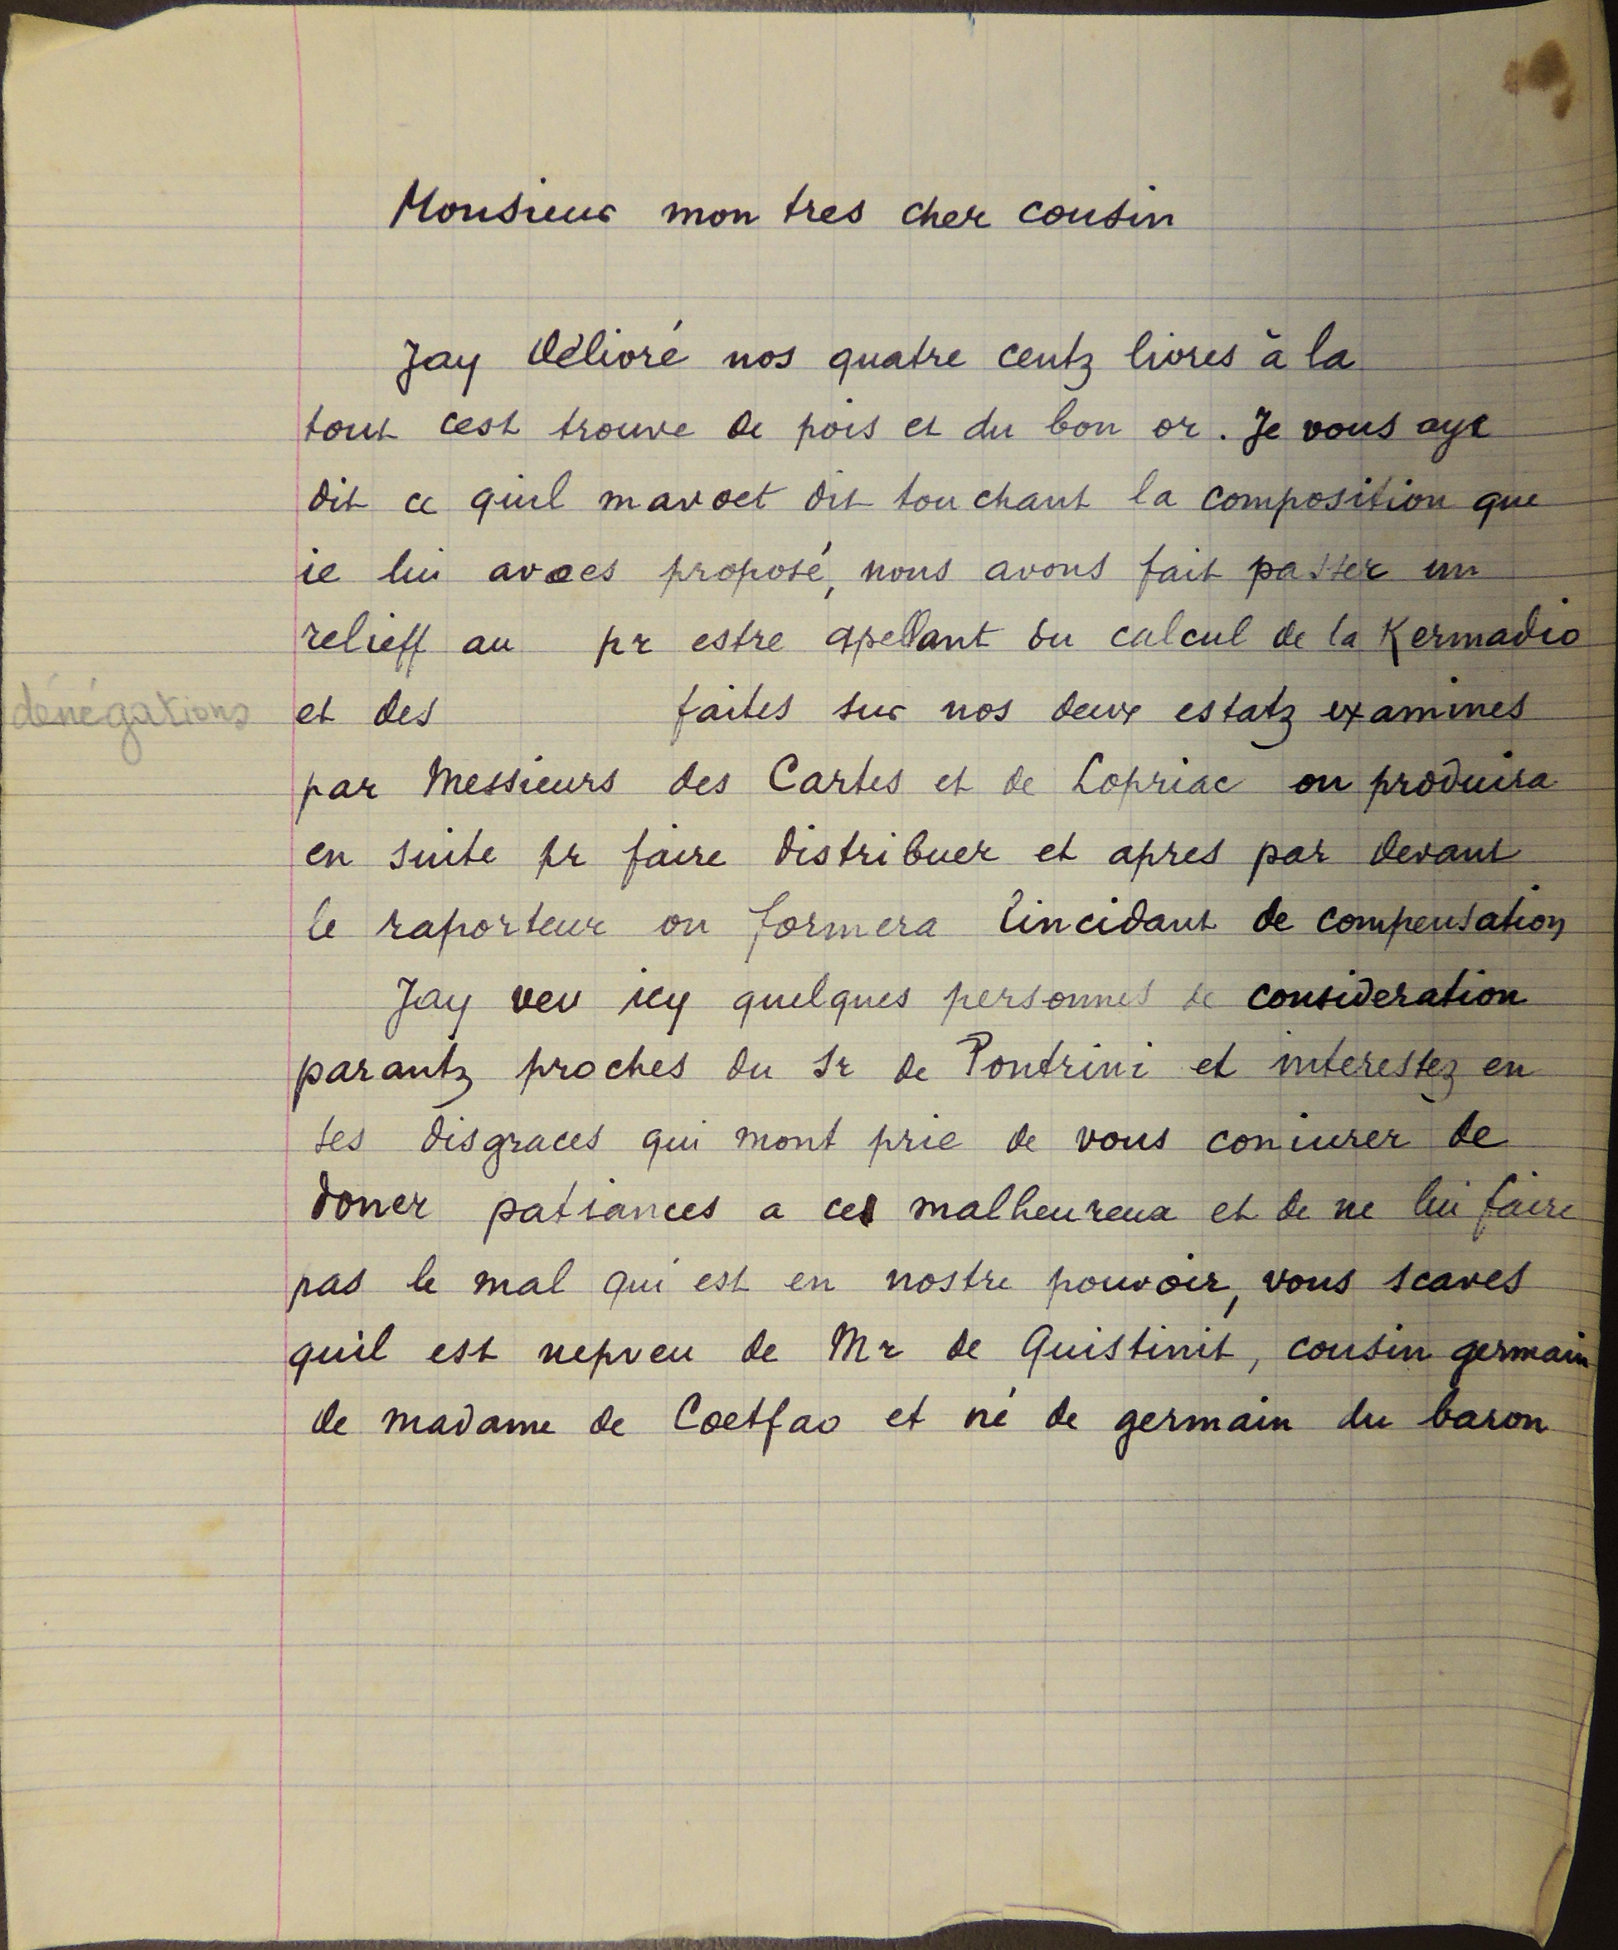 Monsieur mon tres cher cousin
Jay délivré nos quatre centz livres à la
tout cest trouve de pois et du bon or. Je vous aye
dit ce quil mavoet dit touchant la composition que
ie lui avoes proposé, nous avons fait passer un
relieff au pr estre apellant du calcul de la Kermadio
et des faites sur nos deux estatz examines
dénégations
par Messieurs des Cartes et de Lopriac on produira
en suite pr faire distribuer et apres par devant
le raporteur on formera lincidant de compensation
Jay veu icy quelques personnes de consideration
parantz proches du Sr de Pontrini et interestez en
ses disgraces qui mont prie de vous coniurer de
doner patiances a ces malheureux et de ne lui faire
pas le mal qui est en nostre pouvoir, vous scaves
quil est nepveu de Mr de Quistinit, cousin germain
de madame de Coetfao et né de germain du baron